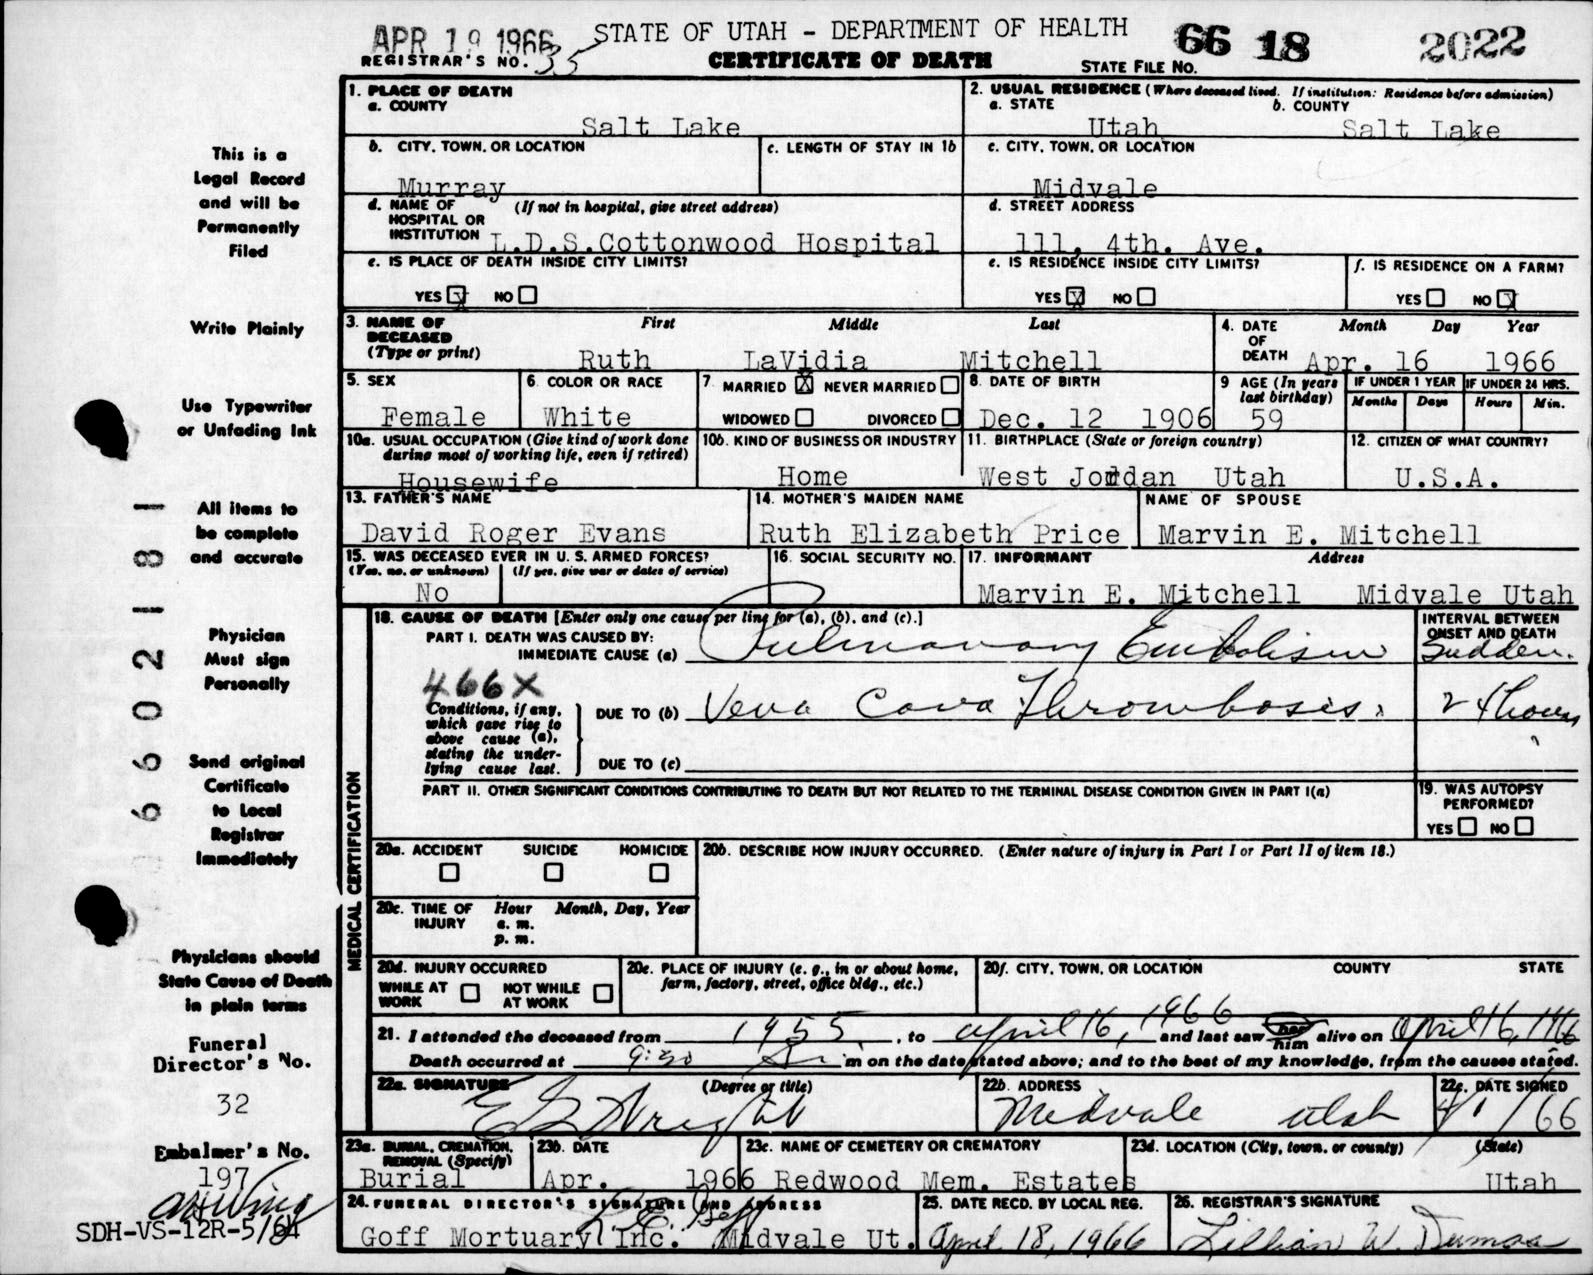 APR 19 1966 STATE OF UTAH - DEPARTMENT OF HEALTH 66 18 2022
REGISTRAR'S NO. 35 CERTIFICATE OF DEATH STATE FILE NO.
1. PLACE OF DEATH
a. COUNTY
Salt Lake
2. USUAL RESIDENCE (Where deceased lived. If institution: Residence before admission)
a. STATE b. COUNTY
Utah Salt Lake
b. CITY, TOWN, OR LOCATION c. LENGTH OF STAY IN 1b
Murray
c. CITY, TOWN, OR LOCATION
Midvale
d. NAME OF (If not in hospital, give street address)
HOSPITAL OR
INSTITUTION L.D.S.Cottonwood Hospital
d. STREET ADDRESS
111. 4th. Ave.
e. IS PLACE OF DEATH INSIDE CITY LIMITS?
YES X NO
e. IS RESIDENCE INSIDE CITY LIMITS?
YES X NO
f. IS RESIDENCE ON A FARM?
YES NO X
3. NAME OF First Middle Last
DECEASED
(Type or print) Ruth LaVidia Mitchell
4. DATE Month Day Year
OF
DEATH Apr. 16 1966
5. SEX
Female
6. COLOR OR RACE
White
7. MARRIED X NEVER MARRIED
WIDOWED DIVORCED
8. DATE OF BIRTH
Dec. 12 1906
9 AGE (In years
last birthday)
59
IF UNDER 1 YEAR IF UNDER 24 HRS.
Months Days Hours Min.
10a. USUAL OCCUPATION (Give kind of work done
during most of working life, even if retired)
Housewife
10b. KIND OF BUSINESS OR INDUSTRY
Home
11. BIRTHPLACE (State or foreign country)
West Jordan Utah
12. CITIZEN OF WHAT COUNTRY?
U.S.A.
13. FATHER'S NAME
David Roger Evans
14. MOTHER'S MAIDEN NAME
Ruth Elizabeth Price
NAME OF SPOUSE
Marvin E. Mitchell
15. WAS DECEASED EVER IN U. S. ARMED FORCES?
(Yes, no, or unknown) (If yes, give war or dates of service)
No
16. SOCIAL SECURITY NO.
17. INFORMANT Address
Marvin E. Mitchell Midvale Utah
MEDICAL CERTIFICATION
18. CAUSE OF DEATH [Enter only one cause per line for (a), (b), and (c).]
PART I. DEATH WAS CAUSED BY:
IMMEDIATE CAUSE (a) Pulmonary Embolism
INTERVAL BETWEEN
ONSET AND DEATH
Sudden.
466X
Conditions, if any,
which gave rise to
above cause (a),
stating the under-
lying cause last.
DUE TO (b) Vena Cava Thrombosis. 24 hours
DUE TO (c)
PART II. OTHER SIGNIFICANT CONDITIONS CONTRIBUTING TO DEATH BUT NOT RELATED TO THE TERMINAL DISEASE CONDITION GIVEN IN PART I(a)
19. WAS AUTOPSY
PERFORMED?
YES NO
20a. ACCIDENT SUICIDE HOMICIDE
20b. DESCRIBE HOW INJURY OCCURRED. (Enter nature of injury in Part I or Part II of item 18.)
20c. TIME OF Hour Month, Day, Year
INJURY a. m.
p. m.
20d. INJURY OCCURRED
WHILE AT NOT WHILE
WORK AT WORK
20e. PLACE OF INJURY (e. g., in or about home,
farm, factory, street, office bldg., etc.)
20f. CITY, TOWN, OR LOCATION COUNTY STATE
21. I attended the deceased from 1955, to April 16, 1966 and last saw her him alive on April 16, 1966
Death occurred at 9:30 m on the date stated above; and to the best of my knowledge, from the causes stated.
22a. SIGNATURE (Degree or title)
E G Wright
22b. ADDRESS
Midvale Utah
22c. DATE SIGNED
23a. BURIAL, CREMATION,
REMOVAL (Specify)
Burial
23b. DATE
Apr. 1966
23c. NAME OF CEMETERY OR CREMATORY
Redwood Mem. Estates
23d. LOCATION (City, town, or county) (State)
Utah
24. FUNERAL DIRECTOR'S SIGNATURE AND ADDRESS
Goff Mortuary Inc. Midvale Ut.
25. DATE RECD. BY LOCAL REG.
April 18, 1966
26. REGISTRAR'S SIGNATURE
Lillian W. Dumas
This is a
Legal Record
and will be
Permanently
Filed
Write Plainly
Use Typewriter
or Unfading Ink
All items to
be complete
and accurate
Physician
Must sign
Personally
Send original
Certificate
to Local
Registrar
Immediately
Physicians should
State Cause of Death
in plain terms
Funeral
Director's No.
32
Embalmer's No.
197
SDH-VS-12R-5/64
66 02181